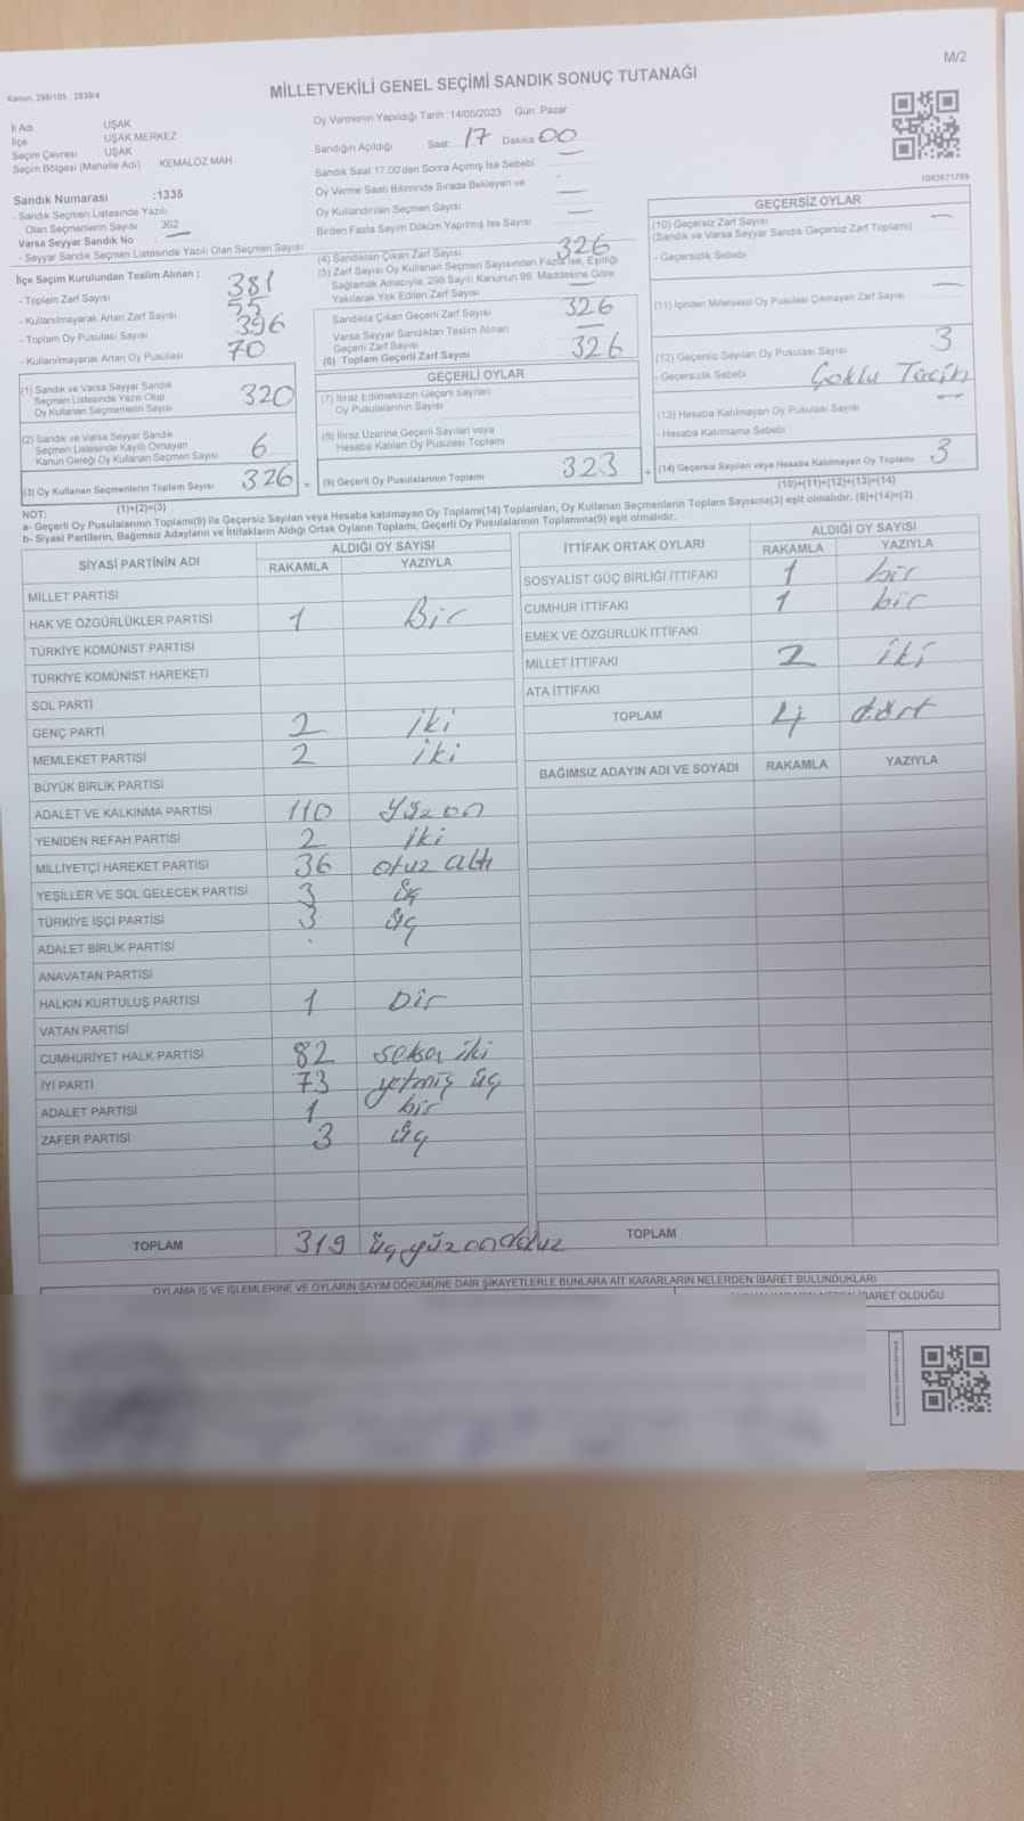 M/2
Kanun: 298/105 - 2839/4
MİLLETVEKİLİ GENEL SEÇİMİ SANDIK SONUÇ TUTANAĞI
İl Adı UŞAK
İlçe UŞAK MERKEZ
Seçim Çevresi UŞAK
Seçim Bölgesi (Mahalle Adı) KEMALÖZ MAH
Sandık Numarası :1335
- Sandık Seçmen Listesinde Yazılı
Olan Seçmenlerin Sayısı 362
Varsa Seyyar Sandık No
- Seyyar Sandık Seçmen Listesinde Yazılı Olan Seçmen Sayısı
İlçe Seçim Kurulundan Teslim Alınan :
- Toplam Zarf Sayısı 381
- Kullanılmayarak Artan Zarf Sayısı 55
- Toplam Oy Pusulası Sayısı 396
- Kullanılmayarak Artan Oy Pusulası 70
(1) Sandık ve Varsa Seyyar Sandık
Seçmen Listesinde Yazılı Olup
Oy Kullanan Seçmenlerin Sayısı 320
(2) Sandık ve Varsa Seyyar Sandık
Seçmen Listesinde Kayıtlı Olmayan
Kanun Gereği Oy Kullanan Seçmen Sayısı 6
(3) Oy Kullanan Seçmenlerin Toplam Sayısı 326 =
(1)+(2)=(3)
Oy Vermenin Yapıldığı Tarih : 14/05/2023 Gün: Pazar
Sandığın Açıldığı Saat: 17 Dakika 00
Sandık Saat 17.00'den Sonra Açılmış İse Sebebi
Oy Verme Saati Bitiminde Sırada Bekleyen ve
Oy Kullandırılan Seçmen Sayısı
Birden Fazla Sayım Döküm Yapılmış İse Sayısı
(4) Sandıktan Çıkan Zarf Sayısı 326
(5) Zarf Sayısı Oy Kullanan Seçmen Sayısından Fazla İse, Eşitliği
Sağlamak Amacıyla, 298 Sayılı Kanunun 98. Maddesine Göre
Yakılarak Yok Edilen Zarf Sayısı
Sandıkta Çıkan Geçerli Zarf Sayısı 326
Varsa Seyyar Sandıktan Teslim Alınan
Geçerli Zarf Sayısı
(6) Toplam Geçerli Zarf Sayısı 326
GEÇERLİ OYLAR
(7) İtiraz Edilmeksizin Geçerli Sayılan
Oy Pusulalarının Sayısı
(8) İtiraz Üzerine Geçerli Sayılan veya
Hesaba Katılan Oy Pusulası Toplamı
(9) Geçerli Oy Pusulalarının Toplamı 323 +
1083671789
GEÇERSİZ OYLAR
(10) Geçersiz Zarf Sayısı
(Sandık ve Varsa Seyyar Sandık Geçersiz Zarf Toplamı)
- Geçersizlik Sebebi
(11) İçinden Milletvekili Oy Pusulası Çıkmayan Zarf Sayısı
(12) Geçersiz Sayılan Oy Pusulası Sayısı 3
- Geçersizlik Sebebi Çoklu Tercih
(13) Hesaba Katılmayan Oy Pusulası Sayısı
- Hesaba Katılmama Sebebi
(14) Geçersiz Sayılan veya Hesaba Katılmayan Oy Toplamı 3
(10)+(11)+(12)+(13)=(14)
NOT:
a- Geçerli Oy Pusulalarının Toplamı(9) ile Geçersiz Sayılan veya Hesaba katılmayan Oy Toplamı(14) Toplamları, Oy Kullanan Seçmenlerin Toplam Sayısına(3) eşit olmalıdır. (9)+(14)=(3)
b- Siyasi Partilerin, Bağımsız Adayların ve İttifakların Aldığı Ortak Oyların Toplamı, Geçerli Oy Pusulalarının Toplamına(9) eşit olmalıdır.
SİYASİ PARTİNİN ADI ALDIĞI OY SAYISI
RAKAMLA YAZIYLA
MİLLET PARTİSİ
HAK VE ÖZGÜRLÜKLER PARTİSİ 1 Bir
TÜRKİYE KOMÜNİST PARTİSİ
TÜRKİYE KOMÜNİST HAREKETİ
SOL PARTİ
GENÇ PARTİ 2 iki
MEMLEKET PARTİSİ 2 iki
BÜYÜK BİRLİK PARTİSİ
ADALET VE KALKINMA PARTİSİ 110 Yüz on
YENİDEN REFAH PARTİSİ 2 iki
MİLLİYETÇİ HAREKET PARTİSİ 36 otuz altı
YEŞİLLER VE SOL GELECEK PARTİSİ 3 üç
TÜRKİYE İŞÇİ PARTİSİ 3 üç
ADALET BİRLİK PARTİSİ
ANAVATAN PARTİSİ
HALKIN KURTULUŞ PARTİSİ 1 bir
VATAN PARTİSİ
CUMHURİYET HALK PARTİSİ 82 seksen iki
İYİ PARTİ 73 yetmiş üç
ADALET PARTİSİ 1 bir
ZAFER PARTİSİ 3 üç
TOPLAM 319 üç yüz ondokuz
İTTİFAK ORTAK OYLARI ALDIĞI OY SAYISI
RAKAMLA YAZIYLA
SOSYALİST GÜÇ BİRLİĞİ İTTİFAKI 1 bir
CUMHUR İTTİFAKI 1 bir
EMEK VE ÖZGÜRLÜK İTTİFAKI
MİLLET İTTİFAKI 2 iki
ATA İTTİFAKI
TOPLAM 4 dört
BAĞIMSIZ ADAYIN ADI VE SOYADI RAKAMLA YAZIYLA
TOPLAM
OYLAMA İŞ VE İŞLEMLERİNE VE OYLARIN SAYIM DÖKÜMÜNE DAİR ŞİKAYETLERLE BUNLARA AİT KARARLARIN NELERDEN İBARET BULUNDUKLARI
İBARET OLDUĞU